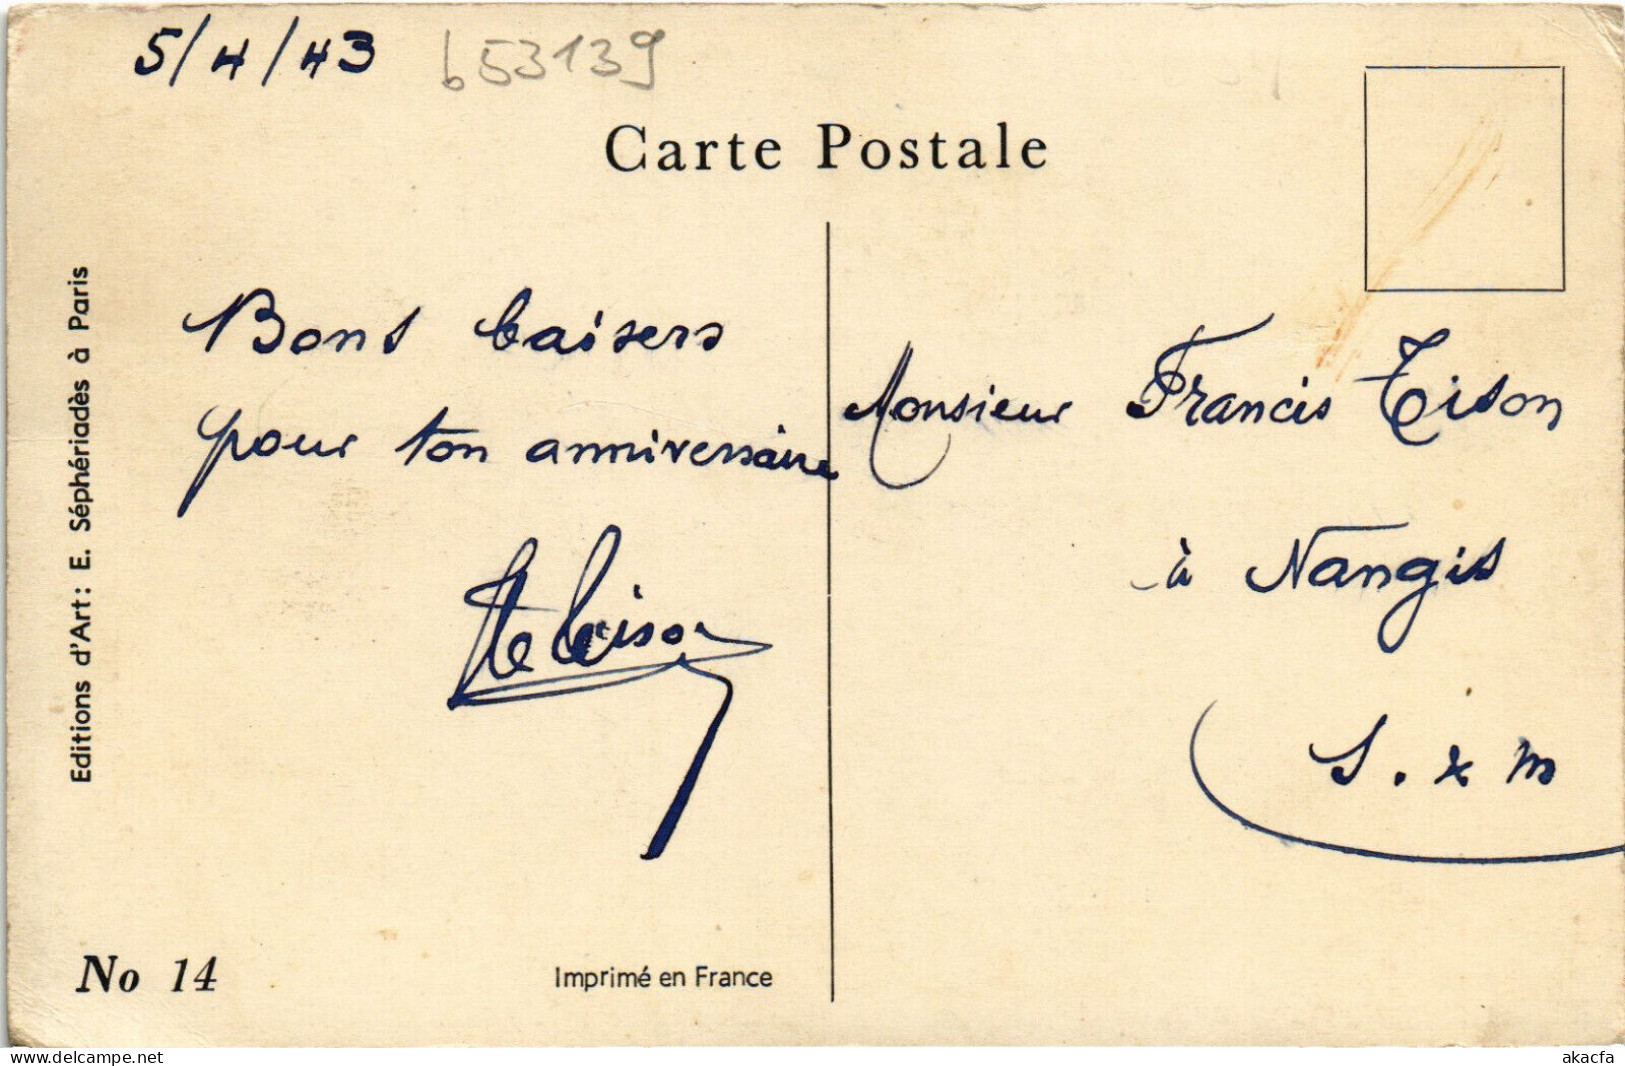 5/4/43 b53139
Carte Postale
Editions d'Art: E. Séphériadès à Paris
Bons baisers
pour ton anniversaire
Monsieur Francis Tison
à Nangis
S. x m
No 14
Imprimé en France
www.delcampe.net
akacfa